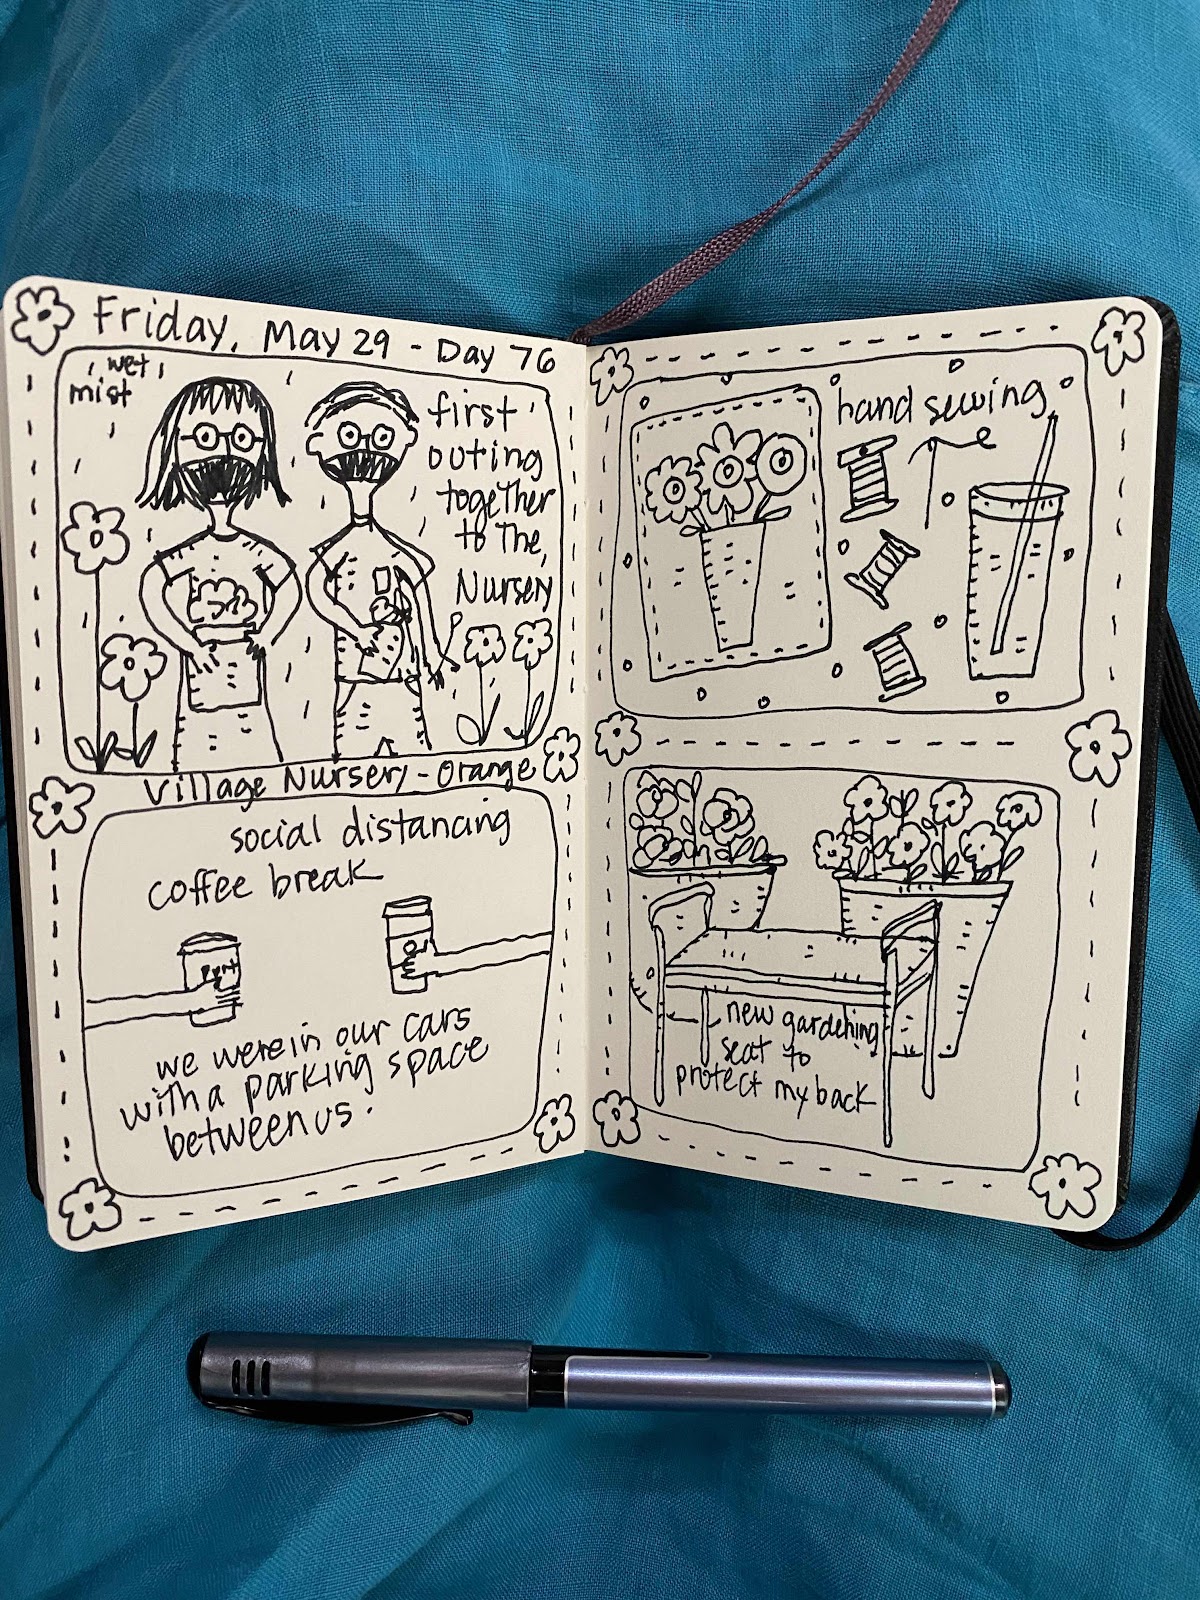 Friday, May 29 - Day 76
wet
mist
first
outing
together
to The
Nursery
Village Nursery - Orange
social distancing
coffee break
we were in our cars
with a parking space
between us.
hand sewing
new gardening
seat to
protect my back